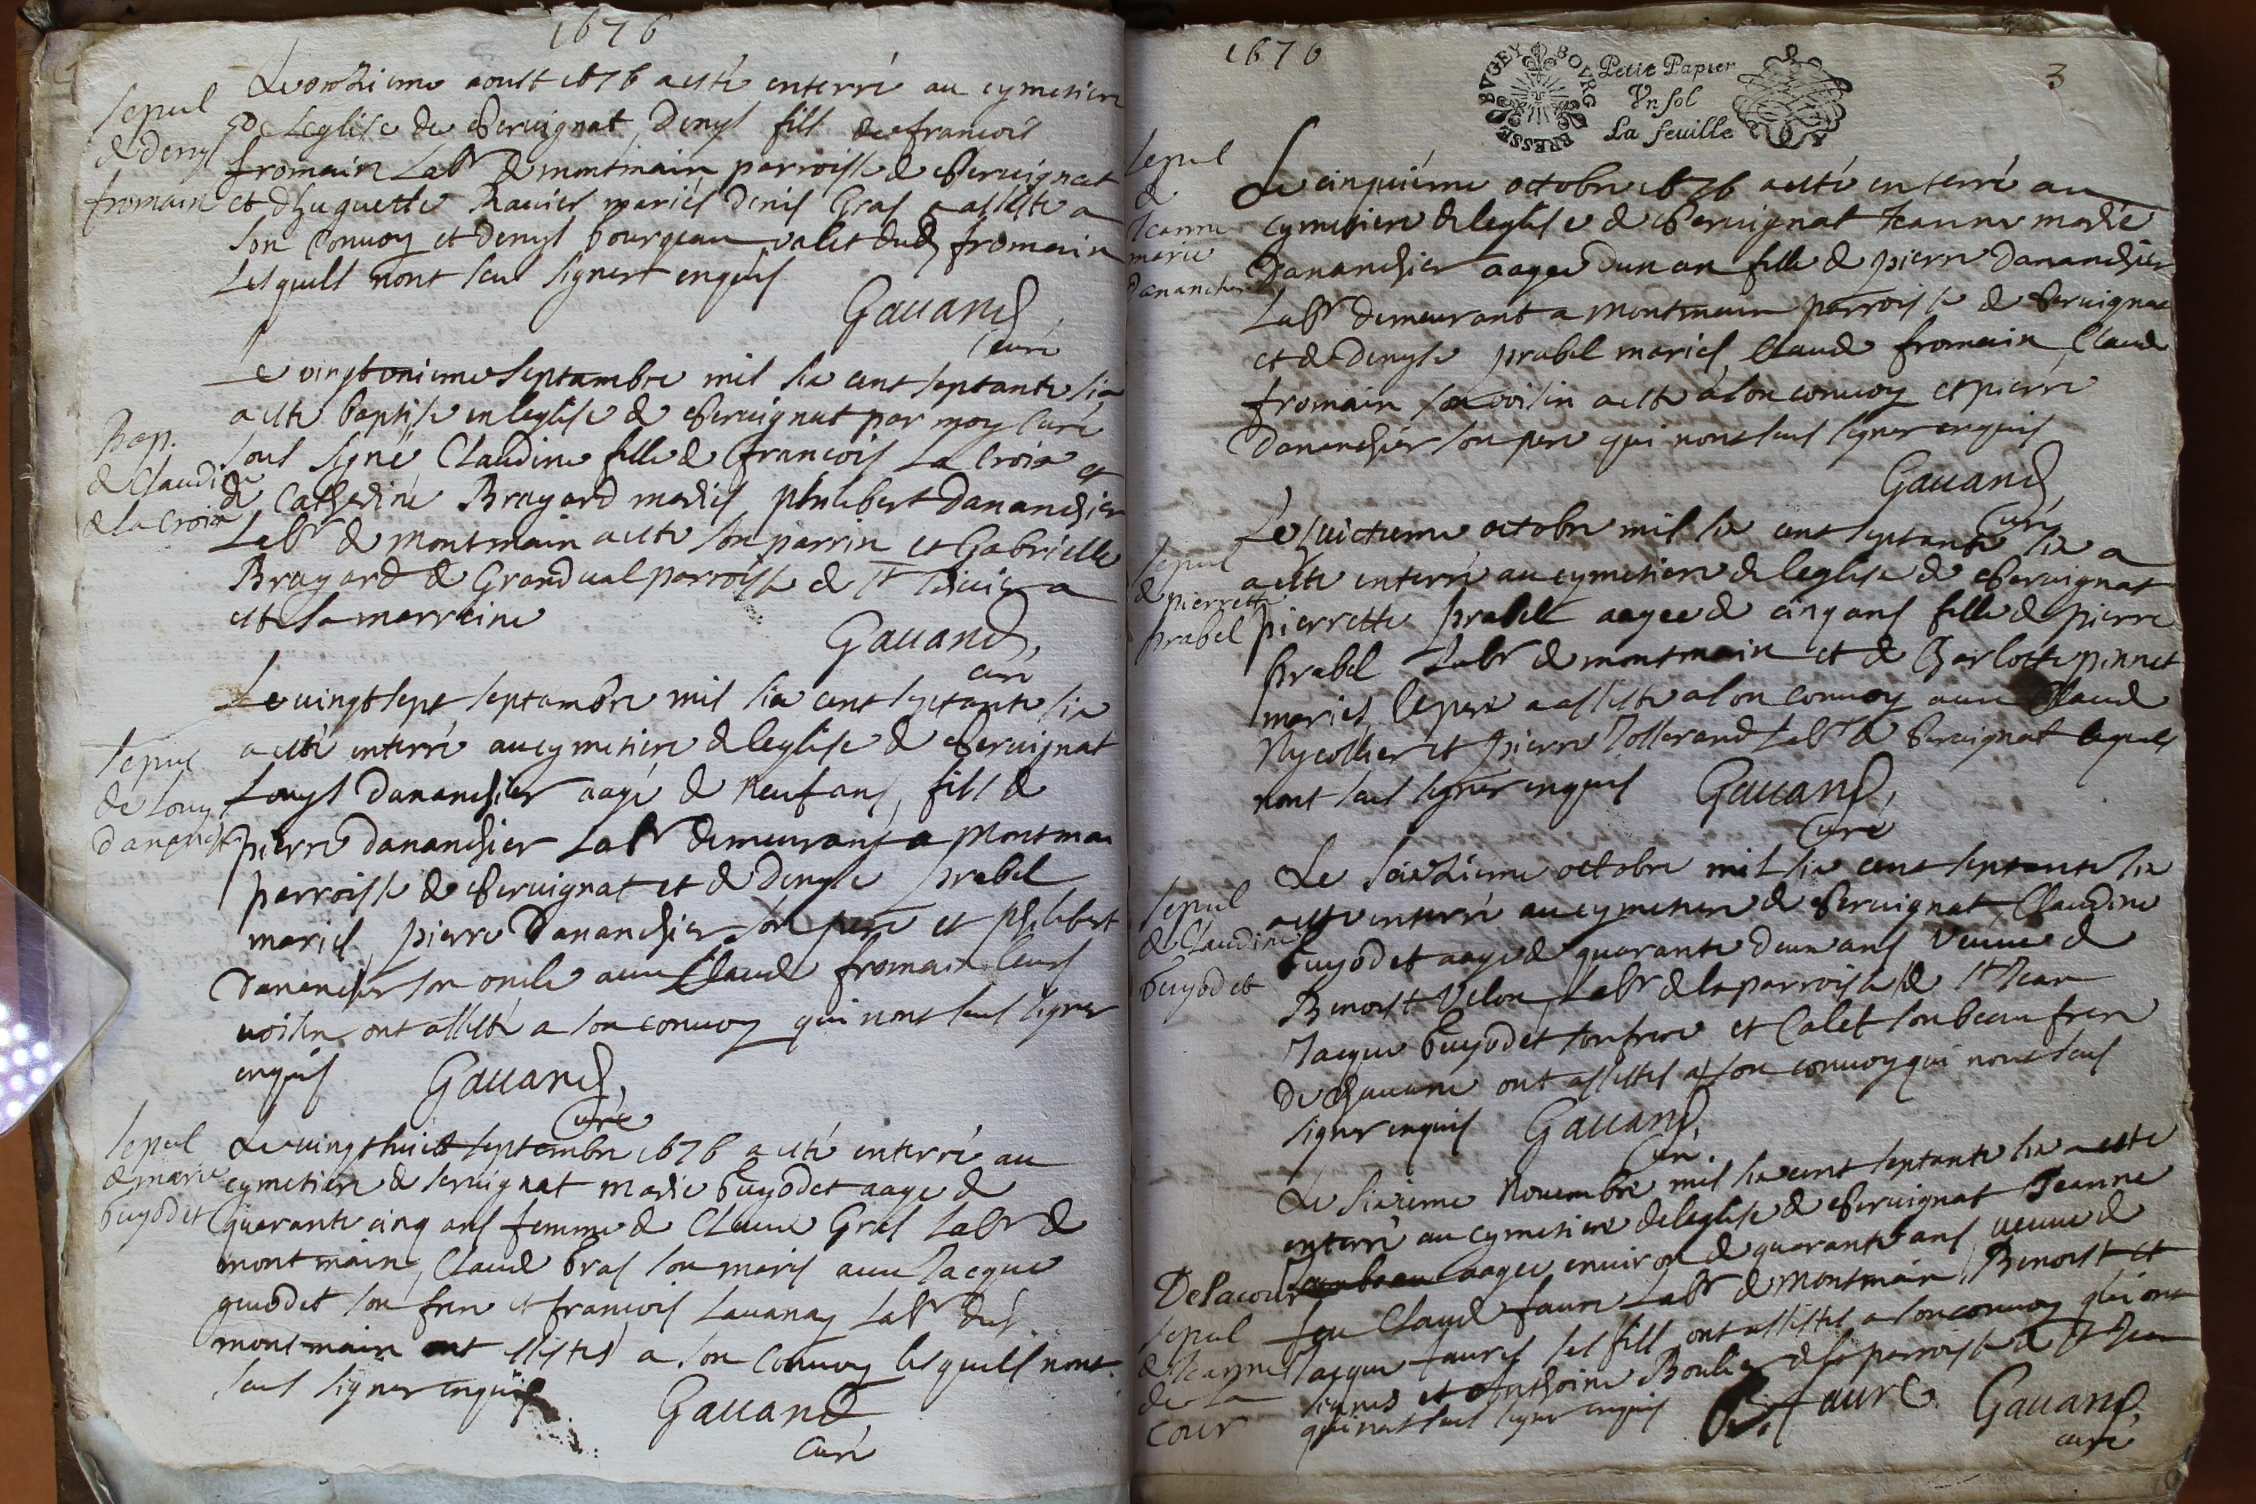 1676
sepul
de denys
fromain
Le onzieme aoust 1676 a esté enterré au cymetiere
de leglise de Servignat Denys fils de francois
fromain Labr de montmain parroisse de Servignat
et dhuguette Ravier mariés Denis Gras a assisté a
son convoy et denys bourgeau valet dud fromain
Lesquels nont seus signer enquis
Gauand
curé
Bap.
de Claudine
de la Croix
Le vingt septambre mil six cent septante six
a esté baptisé en leglise de Servignat par moy curé
sous signé Claudine fille de francois La Croix et
de Catherine Brayard mariés philibert Dananchier
Labr de montmain a esté son parrin et Gabrielle
Brayard de Grandval parroisse de St Trivier a
esté sa marreine
Gauand
curé
sepul
de Louys
Dananch
Le vingt sept septambre mil six cent septante six
a esté enterré au cymetiere de leglise de Servignat
Louys Dananchier aagé de neuf ans, fils de
pierre Dananchier Labr demeurant a Montmain
parroisse de Servignat et de Denyse prabel
mariés, pierre Dananchier son pere et philibert
Dananchier son oncle avec Claude fromain leurs
voisin ont assisté a son convoy qui nont seus signer
enquis
Gauand
Curé
sepul
de marie
buyodet
Le vingt huict septembre 1676 a esté enterré au
cymetiere de servignat marie buyodet aagé de
quarante cinq ans femme de Claude Gras Labr de
montmain, Claude Gras son maris avec Jacque
guiodet son frere et francois Lavanay Labr dud
montmain ont assistés a son convoy lesquels nont
seus signer enquis
Gauand
curé
1676
BVGEY BOVRG BRESSE
Petit Papier
Vn sol
La feuille
3
sepul
de
Jeanne
marie
Dananchier
Le cinquiéme octobre 1676 a esté enterré au
cymetiere de leglise de Servignat Jeanne marie
Dananchier aagée dun an fille de pierre Dananchier
Labr demeurant a montmain parroisse de Servignat
et de Denyse prabel mariés, Claude fromain, Claude
fromain son voisin a esté a son convoy et pierre
Dananchier son pere qui nont seus signer enquis
Gauand
curé
sepul
de pierrette
prabel
Le huictieme octobre mil six cent septante six a
a esté enterré au cymetiere de leglise de Servignat
pierrette prabel aagee de cinq ans fille de pierre
prabel Labr de montmain et de Charlotte pinnet
mariés, le pere a assisté a son convoy avec Claude
Nycollier et pierre Tollerand Labr a Servignat lesquels
nont seus signer enquis
Gauand
Curé
sepul
de Claudine
buyodet
Le seizieme octobre mil six cent septante six
a esté enterré au cymetiere de Servignat, Claudine
buyodet aagé de quarante deux ans veuve de
Benoist Velon, Labr de la parroisse de St Jean
Jacque buyodet son frere et Calet son beau frere
De Chavane ont assistés a son convoy qui nont seus
signer enquis
Gauand
Curé
sepul
de Jeanne
de la
cour
Le sixieme Novembre mil six cent septante six a esté
enterré au cymetiere de leglise de Servignat Jeanne
Delacour aagee environ de quarante ans, veuve de
feu Claude faure Labr de montmain, Benoist et
Jacque faures ses fils ont assistés a son convoy qui ont
signés et Anthoine Boulier de la parroisse de St Jean
qui n'at seus signer enquis
B. faure
Gauand
curé